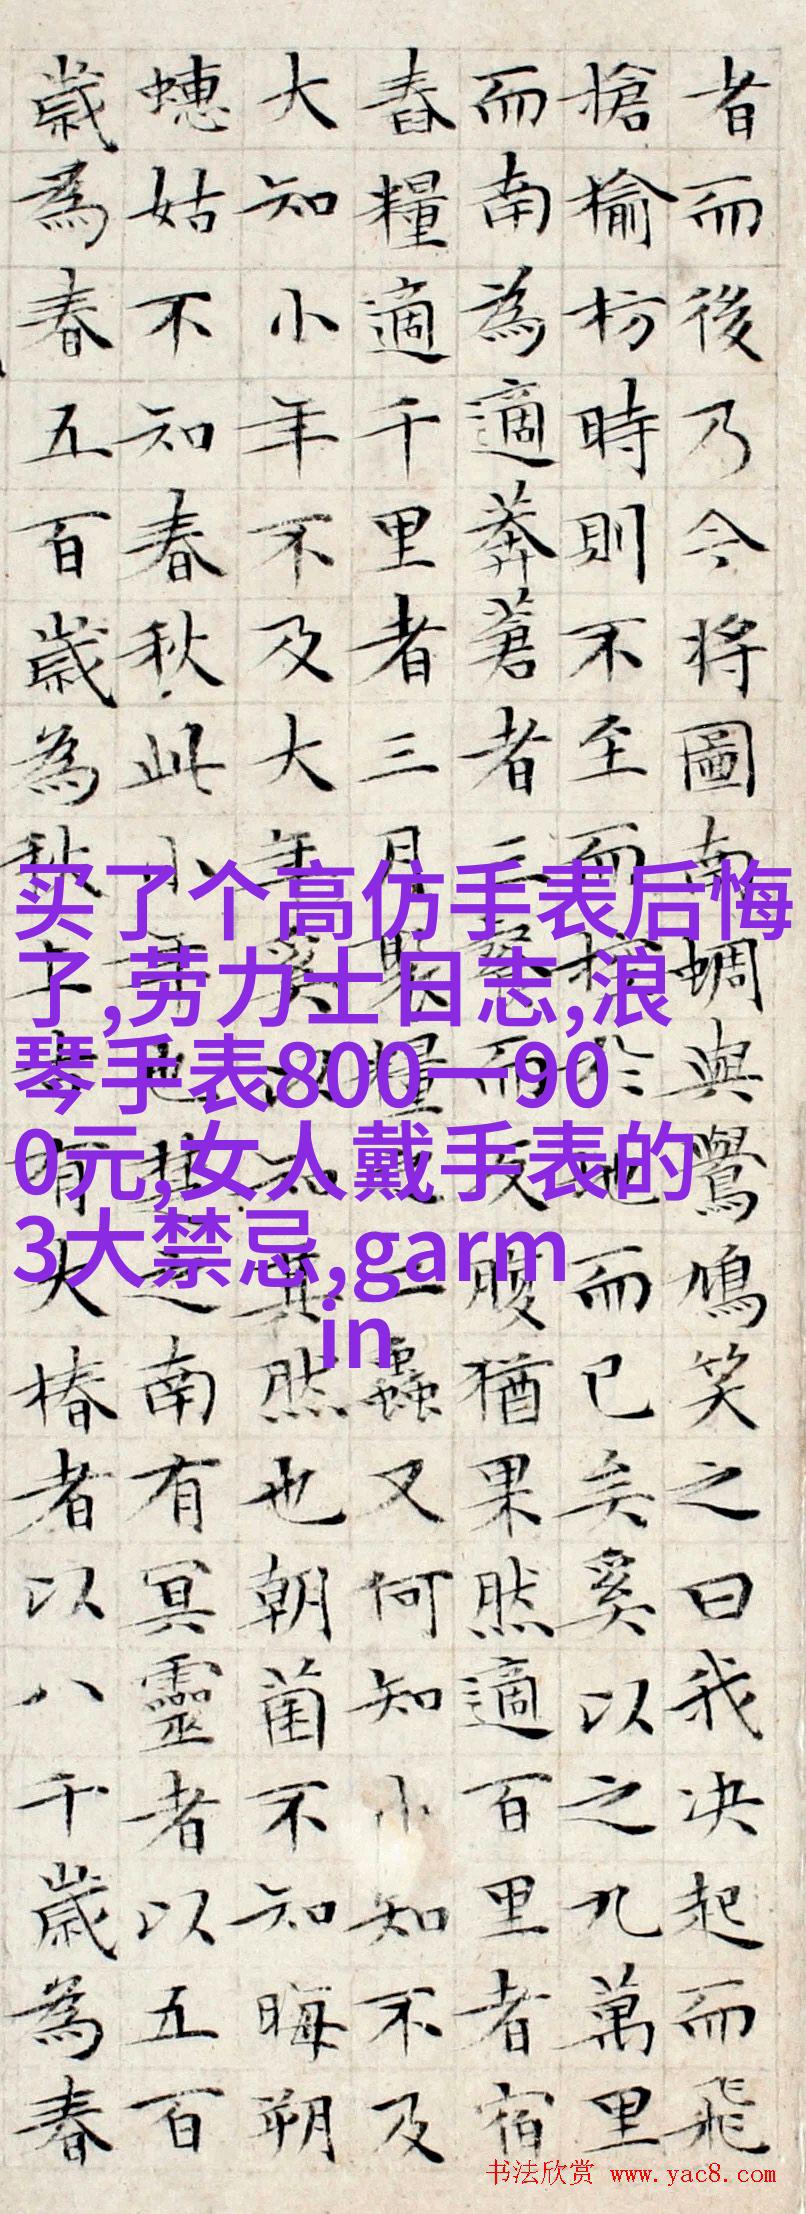 者而後乃今将圖南蜩與鷽鳩笑之曰我决起而飛
搶榆枋時則不至而控於地而已矣奚以之九萬里
而南為適莽蒼者三飡而反腹猶果然適百里者宿
舂糧適千里者三月聚糧之二蟲又何知小知不及
大知小年不及大年奚以知其然也朝菌不知晦朔
蟪姑不知春秋此小年也楚之南有冥靈者以五百
歲為春五百歲為秋上古有大椿者以八千歲為春
买了个高仿手表后悔
了,劳力士日志,浪
琴手表800一90
0元,女人戴手表的
3大禁忌,garm
in
书法欣赏 www.yac8.com